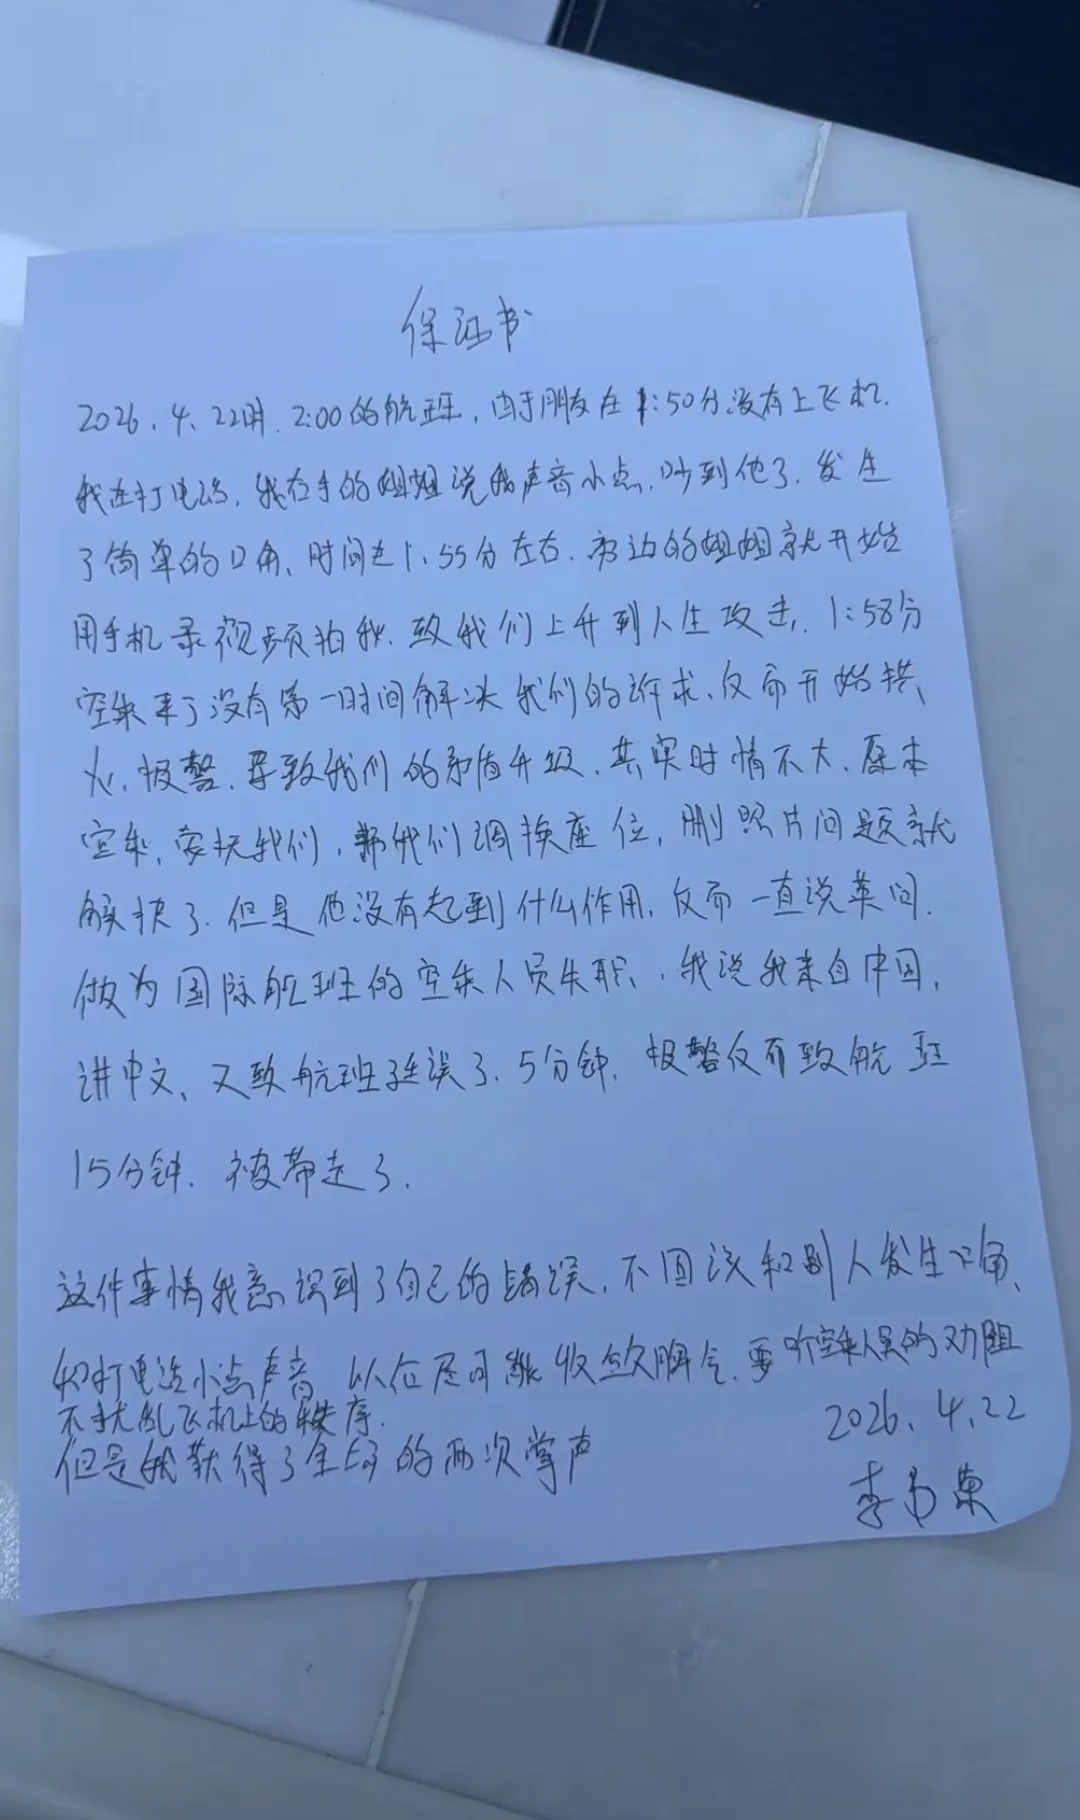 保证书
2026.4.22时.2:00的航班,由于朋友在1:50分没有上飞机.
我在打电话,我右手的姐姐说我声音小点,吵到他了.发生
了简单的口角、时间在1.55分左右.旁边的姐姐就开始
用手机录视频拍我.致我们上升到人生攻击.1:58分
空乘来了没有第一时间解决我们的诉求、反而开始拱
火,报警.导致我们的矛盾升级.其实时情不大.原本
空乘,安抚我们,帮我们调换座位,删照片问题就
解决了.但是他没有起到什么作用,反而一直说英问.
做为国际航班的空乘人员失职,我说我来自中国,
讲中文、又致航班延误了.5分钟.报警反而致航班
15分钟.被带走了.
这件事情我意识到了自己的错误,不因该和别人发生口角、
和打电话小点声音 以后尽可能收敛脾气.要听空乘人员的劝阻
不扰乱飞机上的秩序.
但是我获得了全场的两次掌声
2026.4.22
李荣